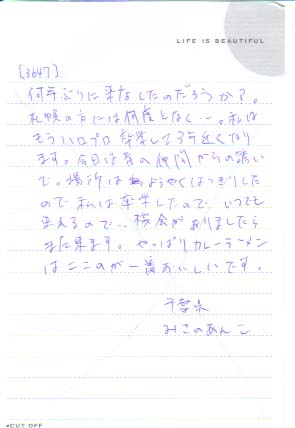 LIFE IS BEAUTIFUL
[3647]
何年ぶりに来たしたのだろうか?。
札幌の方には何度となく…。私は
もうハロプロ卒業して3年近くなり
ます。今日は昔の仲間からの誘い
で。場所はようやくはっきりした
ので私は卒業したので いつでも
来えるので‥機会がありましたら
また来ます。やっぱりカレーラーメン
はここのが一番おいしいです。
千葉県
みさのあんこ
CUT OFF